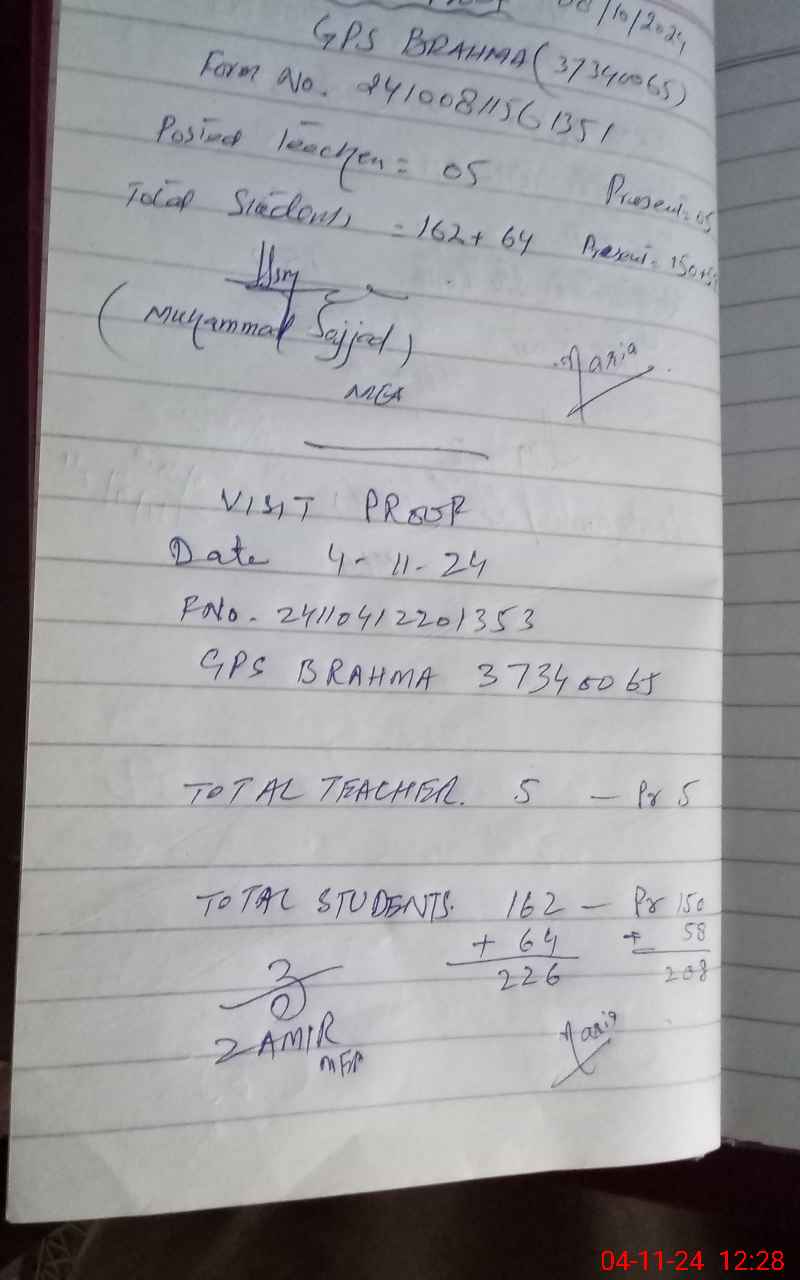 08/10/2024
GPS BRAHMA (37340065)
Form No. 24100811561351
Posted Teacher = 05 Present = 05
Total Students = 162 + 64 Present = 150+5
(Muhammad Sajjad)
MEA
Maria
VISIT PROOF
Date 4-11-24
F No. 241104122201353
GPS BRAHMA 37340065
TOTAL TEACHER. 5 — Pr 5
TOTAL STUDENTS. 162 — Pr 150
+ 64 + 58
226 208
ZAMIR
MEA
Maria
04-11-24 12:28